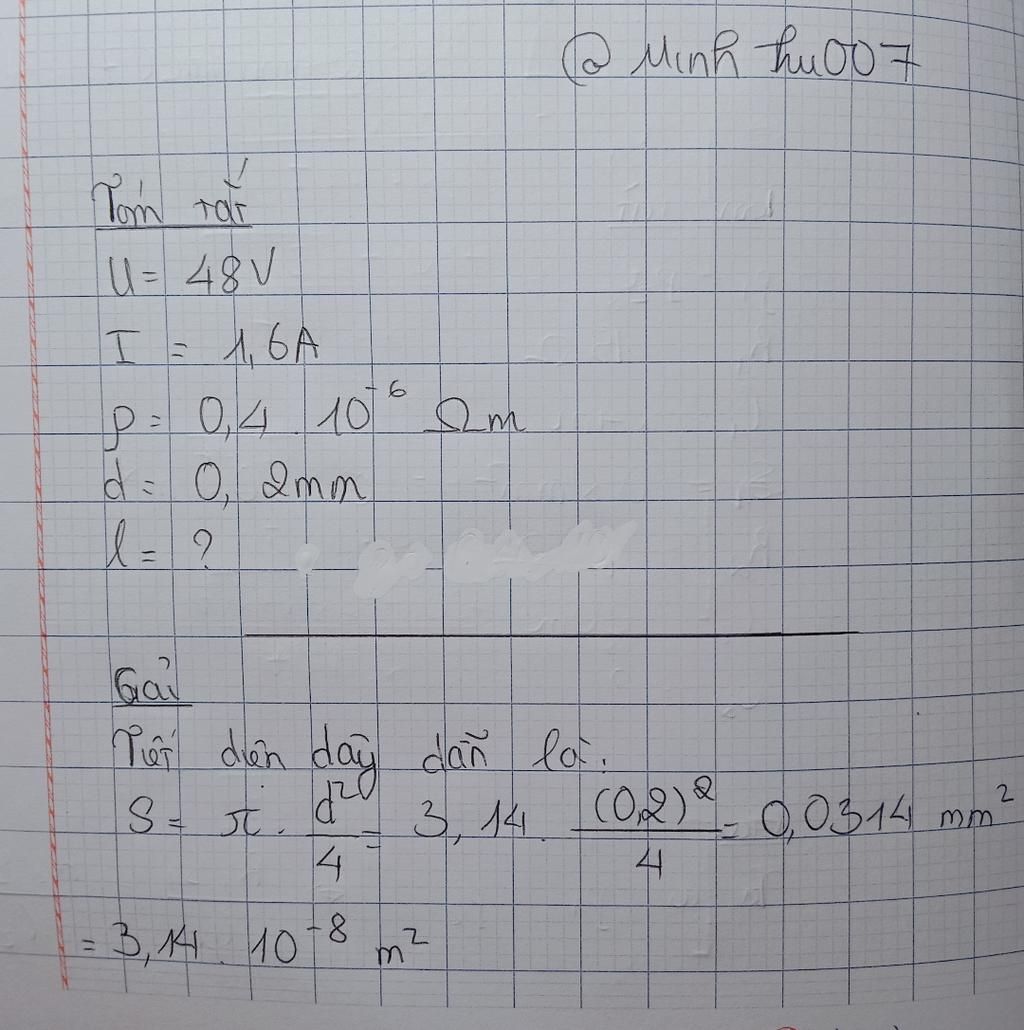 @ Minh thu007
Tóm tắt
U = 48V
I = 1,6A
ρ = 0,4 . 10⁻⁶ Ωm
d = 0,2mm
l = ?
Giải
Tiết diện dây dẫn là:
S = π . d²/4 = 3,14 . (0,2)²/4 = 0,0314 mm²
= 3,14 . 10⁻⁸ m²